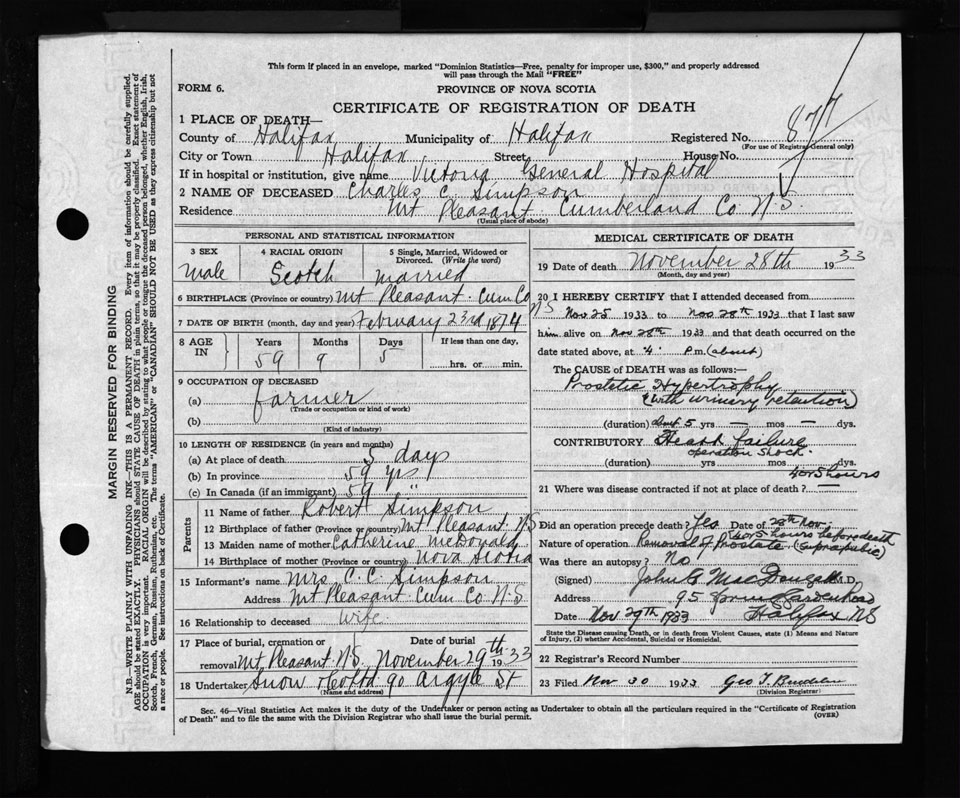 This form if placed in an envelope, marked "Dominion Statistics—Free, penalty for improper use, $300," and properly addressed
will pass through the Mail "FREE"
FORM 6.
PROVINCE OF NOVA SCOTIA
CERTIFICATE OF REGISTRATION OF DEATH
1 PLACE OF DEATH—
County of Halifax Municipality of Halifax Registered No. 877
(For use of Registrar General only)
City or Town Halifax Street House No.
If in hospital or institution, give name Victoria General Hospital
2 NAME OF DECEASED Charles C. Simpson
Residence Mt Pleasant Cumberland Co N.S.
(Usual place of abode)
PERSONAL AND STATISTICAL INFORMATION
3 SEX 4 RACIAL ORIGIN 5 Single, Married, Widowed or
Divorced. (Write the word)
Male Scotch Married
6 BIRTHPLACE (Province or country) Mt Pleasant. Cum Co
NS
7 DATE OF BIRTH (month, day and year) February 23rd 1874
8 AGE IN Years Months Days If less than one day,
59 9 5 hrs. or min.
9 OCCUPATION OF DECEASED
(a) farmer
(Trade or occupation or kind of work)
(b)
(Kind of industry)
10 LENGTH OF RESIDENCE (in years and months)
(a) At place of death 5 days
(b) In province 59 yrs.
(c) In Canada (if an immigrant) 59 "
Parents
11 Name of father Robert Simpson
12 Birthplace of father (Province or country) Mt Pleasant NS
13 Maiden name of mother Catherine McDonald
14 Birthplace of mother (Province or country) Nova Scotia
15 Informant's name Mrs C. C. Simpson
Address Mt Pleasant Cum Co N.S
16 Relationship to deceased Wife
17 Place of burial, cremation or Date of burial
removal Mt Pleasant N.S. November 29th 1933
18 Undertaker Snow 90 Argyle St
(Name and address)
MEDICAL CERTIFICATE OF DEATH
19 Date of death November 28th 1933
(Month, day and year)
20 I HEREBY CERTIFY that I attended deceased from
Nov 25 1933 to Nov 28th 1933 that I last saw
him alive on Nov 28th 1933 and that death occurred on the
date stated above, at "4" P.m. (about)
The CAUSE OF DEATH was as follows:—
Prostatic Hypertrophy
(with urinary retention)
(duration) 5 yrs — mos — dys.
CONTRIBUTORY Heart failure
operation shock.
(duration) yrs mos dys.
4 or 5 hours
21 Where was disease contracted if not at place of death? —
Did an operation precede death? Yes Date of 28th Nov.
(4 or 5 hours before death
Nature of operation Removal of Prostate (suprapubic)
Was there an autopsy? No
(Signed) John G MacDougall M.D.
Address 95 Spring Garden Road
Date Nov 29th 1933 Halifax NS
State the Disease causing Death, or in death from Violent Causes, state (1) Means and Nature
of Injury, (2) whether Accidental, Suicidal or Homicidal.
22 Registrar's Record Number
23 Filed Nov 30 1933 Geo T.
(Division Registrar)
Sec. 46—Vital Statistics Act makes it the duty of the Undertaker or person acting as Undertaker to obtain all the particulars required in the "Certificate of Registration
of Death" and to file the same with the Division Registrar who shall issue the burial permit.
(OVER)
MARGIN RESERVED FOR BINDING
N.B.—WRITE PLAINLY WITH UNFADING INK—THIS IS A PERMANENT RECORD. Every item of information should be carefully supplied.
AGE should be stated EXACTLY. PHYSICIANS should STATE CAUSE OF DEATH in plain terms, so that it may be properly classified. Exact statement of
OCCUPATION is very important. RACIAL ORIGIN will be described by stating to what people or tongue the deceased person belonged, whether English, Irish,
Scotch, French, German, Russian, Ruthenian, etc. The terms "AMERICAN" or "CANADIAN" SHOULD NOT BE USED as they express citizenship but not
a race or people. See instructions on back of Certificate.